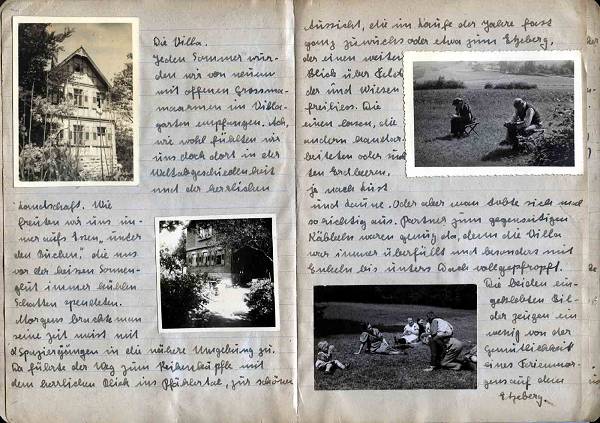 Die Villa.
Jeden Sommer wur-
den wir von neuem
mit offenen Grossma-
maarmen in Villa-
garten empfungen. Ach,
wie wohl fühlten wir
uns doch dort in der
Weltabgeschiedenheit
und der herrlichen
Landschaft. Wie
freuten wir uns im-
mer aufs Essen, "unter
den Buchen", die uns
vor der heissen Sonnen-
glut immer kühlen
Schatten spendeten.
Morgens brachte man
seine Zeit meist mit
Spaziergängen in die nähere Umgebung zu.
Da führte der Weg zum mit
dem herrlichen Blick ins Pfühlertal, zur schönen
Aussicht, die im Laufe der Jahre fast
ganz zuwuchs oder etwa zum Etzeberg,
der einen weiten
Blick über Feld
der und Wiesen
freiliess. Die
einen lasen, die
andern handar-
beiteten oder such
ten Erdbeeren,
je nach Lust
und Laune. Oder aber man tobte sich mal
so richtig aus. Partner zum gegenseitigen
Kabbeln waren genug da, denn die Villa
war immer überfüllt und besonders mit
Enkeln bis unters Dach vollgepfropft.
Die beiden ein-
geklebten Bil-
der zeugen ein
wenig von der
Gemütlichkeit
eines Ferienmor-
gens auf dem
Etzeberg.